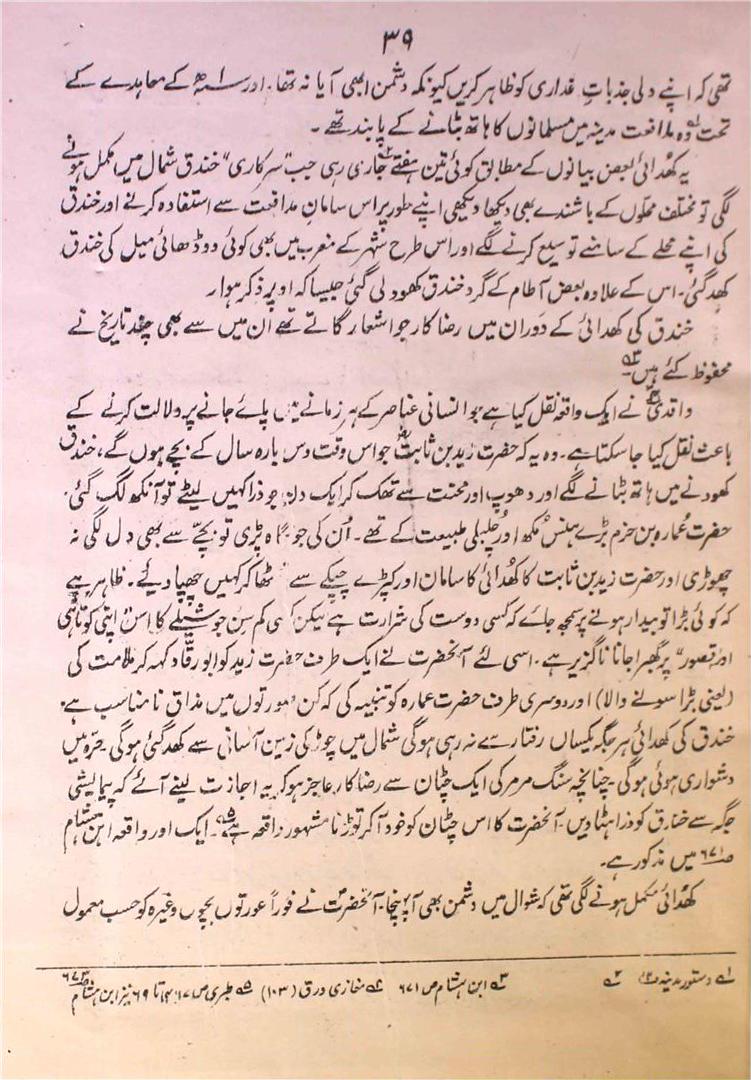 ۳۹
تھی کہ اپنے دلی جذباتِ غداری کو ظاہر کریں کیونکہ دشمن ابھی آیا نہ تھا۔ اور سنہ ۱ھ کے معاہدے کے
تحت۱ وہ مدافعت مدینہ میں مسلمانوں کا ہاتھ بٹانے کے پابند تھے۔
یہ کھدائی بعض بیانوں کے مطابق کوئی تین ہفتے۲ جاری رہی جب "سرکاری" خندق شمال میں مکمل ہونے
لگی تو مختلف محلوں کے باشندے بھی دیکھا دیکھی اپنے طور پر اس سامانِ مدافعت سے استفادہ کرنے اور خندق
کی اپنے محلے کے سامنے توسیع کرنے لگے اور اس طرح شہر کے مغرب میں بھی کوئی دو ڈھائی میل کی خندق
کھد گئی۔ اس کے علاوہ بعض آطام کے گرد خندق کھود لی گئی جیسا کہ اوپر ذکر ہوا۔
خندق کی کھدائی کے دَوران میں رضا کار جو اشعار گاتے تھے ان میں سے بھی چند تاریخ نے
محفوظ کئے ہیں۳۔
واقدی۴ نے ایک واقعہ نقل کیا ہے جو انسانی عناصر کے ہر زمانے میں پائے جانے پر دلالت کرنے کے
باعث نقل کیا جا سکتا ہے۔ وہ یہ کہ حضرت زید بن ثابتؓ جو اس وقت دس بارہ سال کے بچے ہوں گے، خندق
کھودنے میں ہاتھ بٹانے لگے اور دھوپ اور محنت سے تھک کر ایک دن جو ذرا کہیں لیٹے تو آنکھ لگ گئی۔
حضرت عُمارہ بن حزم بڑے ہنس مکھ اور چلبلی طبیعت کے تھے۔ اُن کی جو نگاہ پڑی تو بچّے سے بھی دل لگی نہ
چھوڑی اور حضرت زید بن ثابت کا کھدائی کا سامان اور کپڑے چپکے سے اٹھا کر کہیں چھپا دیئے۔ ظاہر ہے
کہ کوئی بڑا تو بیدار ہونے پر سمجھ جائے کہ کسی دوست کی شرارت ہے لیکن کسی کم سِن جوشیلے کا اس "اپنی کوتاہی
اور قصور" پر گھبرا جانا ناگزیر ہے۔ اسی لئے آنحضرت نے ایک طرف حضرت زید کو ابو رقّاد کہہ کر ملامت کی
(یعنی بڑا سونے والا) اور دوسری طرف حضرت عمارہ کو تنبیہ کی کہ کن صورتوں میں مذاق نامناسب ہے۔
خندق کی کھدائی ہر جگہ یکساں رفتار سے نہ رہی ہوگی شمال میں چوڑ کی زمین آسانی سے کھد گئی ہوگی۔ حرّہ میں
دشواری ہوئی ہوگی۔ چنانچہ سنگ مرمر کی ایک چٹان سے رضا کار عاجز ہو کر یہ اجازت لینے آئے کہ پیمائشی
جگہ سے خنادق کو ذرا ہٹا دیں۔ آنحضرت کا اس چٹان کو خود آکر توڑنا مشہور واقعہ ہے۵۔ ایک اور واقعہ ابن ہشام
ص ۶۷۱ میں مذکور ہے۔
کھدائی مکمل ہونے لگی تھی کہ شوال میں دشمن بھی آ پہنچا۔ آنحضرتؐ نے فوراً عورتوں بچوں وغیرہ کو حسب معمول
۱ دستور مدینہ ۲ ۳ ابن ہشام ص ۶۷۱ ۴ مغازی ورق (۱۰۳) ۵ طبری ص ۱۴۶۷ تا ۶۹ نیز ابن ہشام ص ۶۷۳